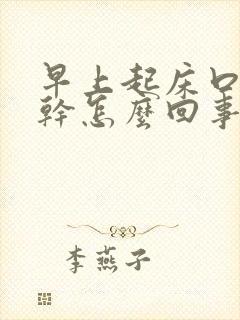 早上起床口
幹怎麼回事
李燕子